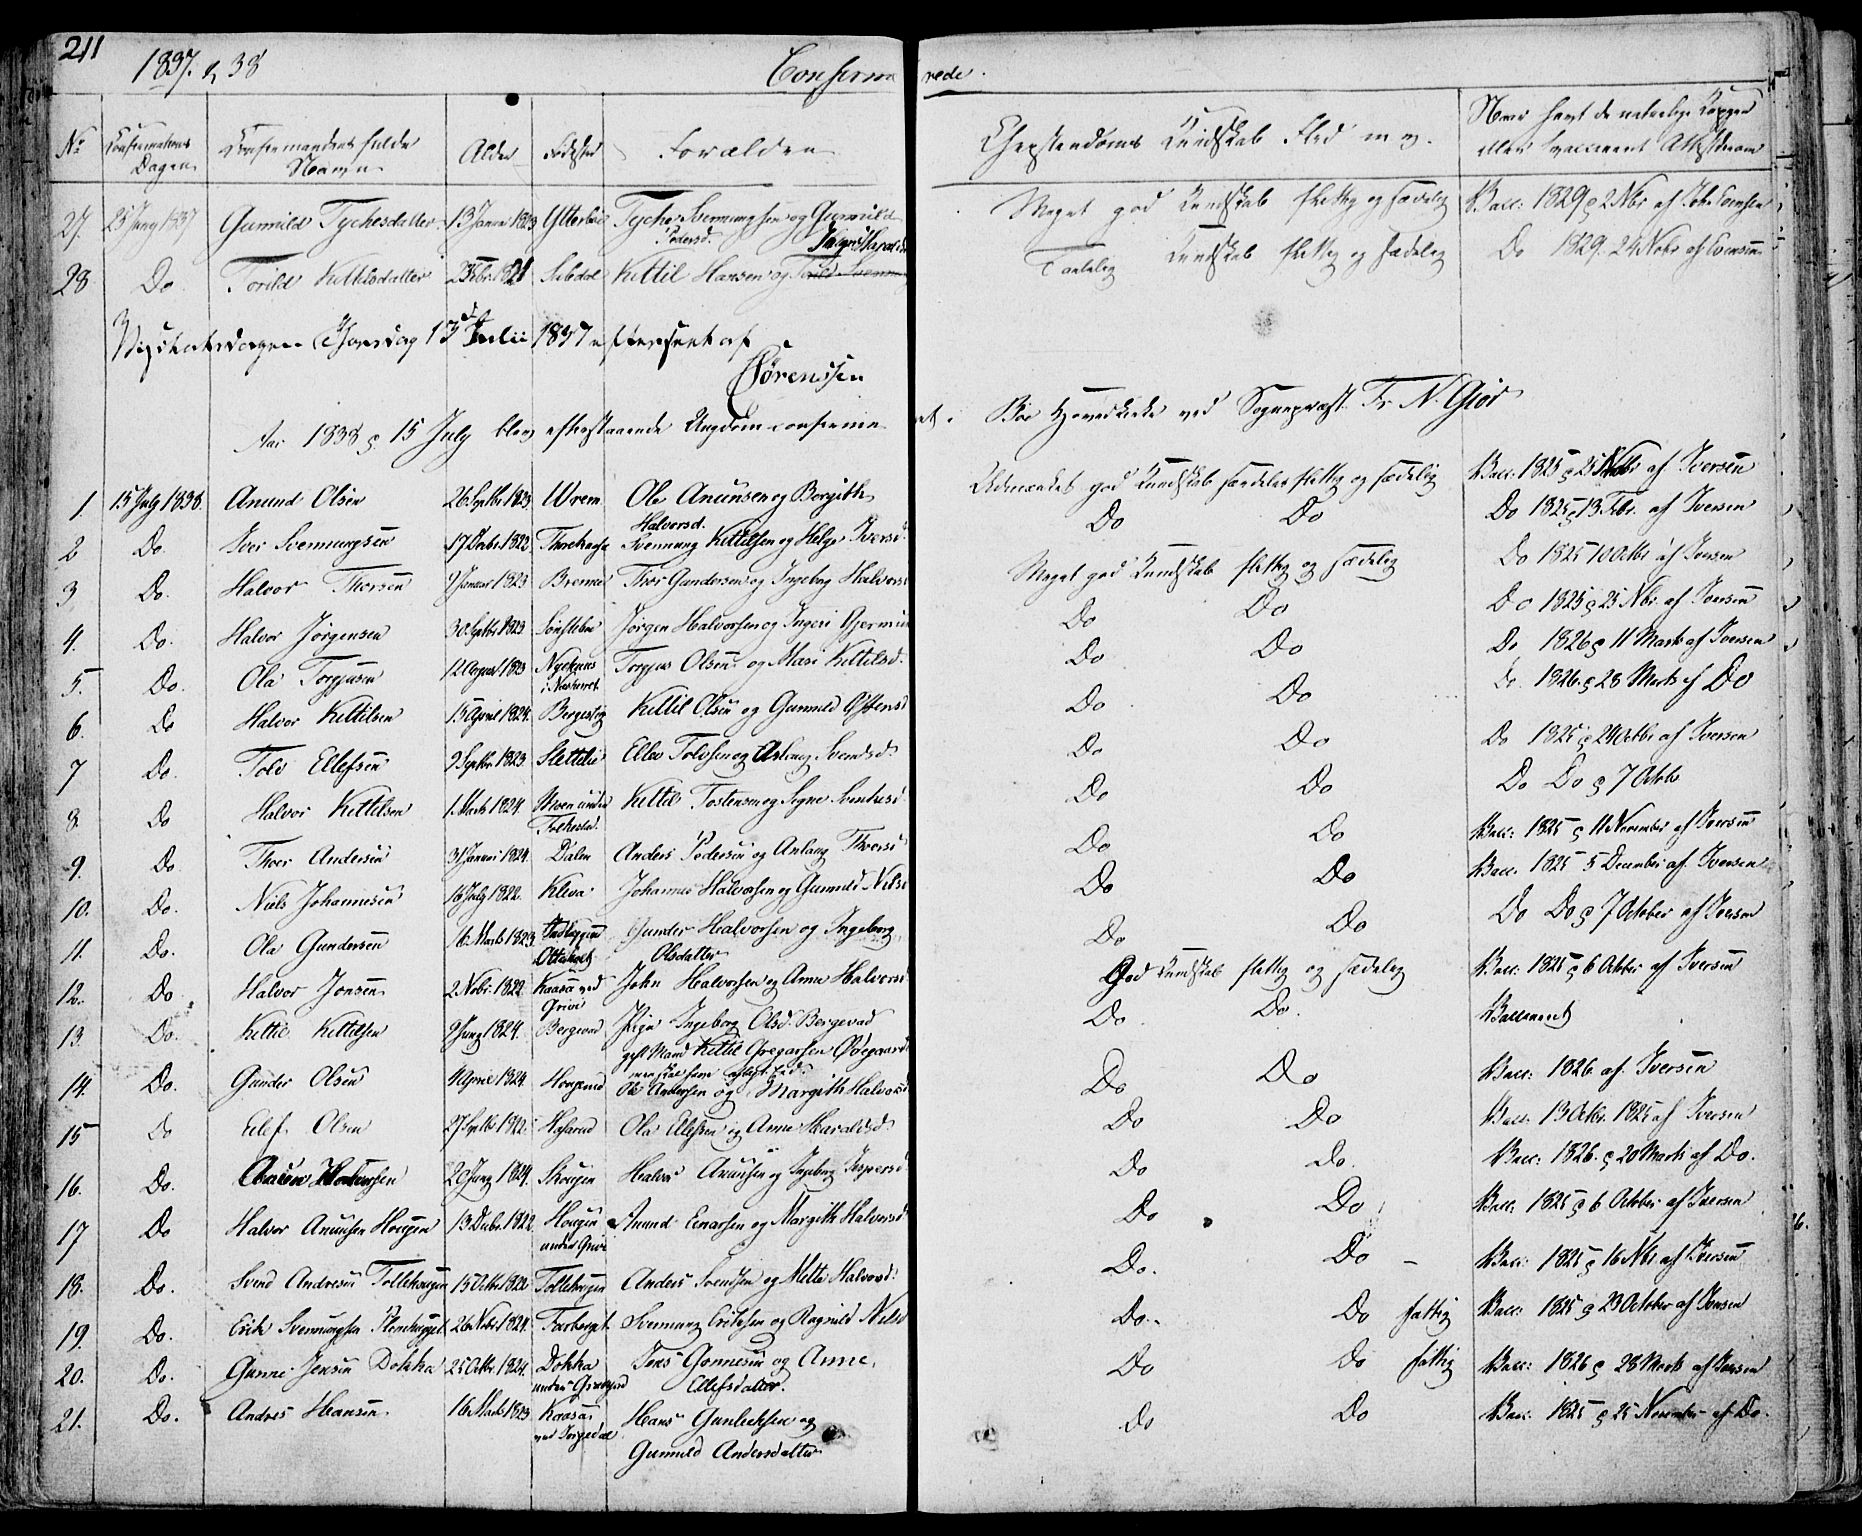 211
1837. & 38
Confirmerede.
No Confirmations Dagen Confirmandens fulde Navn Alder Fødested Forældrene Christendoms Kundskab Flid m. v. Naar havt de naturlige Kopper eller Vaccineret Attesterede
27. 25 Juny 1837 Gunnild Tychesdatter 13 Januar 1823 Ytterbøe Tyche Svennungsen og Gunnild Pedersd. Meget god Kundskab flittig og sædelig Vacc: 1829 2 Nbr af Joh: Comsen
28 Do Torild Kittilsdatter 1821 Kittil Hansen og Taalelig Kundskab flittig og sædelig Do 1829. 24 Nvbr af Comsen
Visitatsdagen Torsdag 13de Julii 1837 efterseet af
Sørenssen
Aar 1838 d 15 July blev efterstaaende Ungdom confirmeret i Bøe Hovedkirke ved Sognepræst Fr. N. Giør
1. 15 July 1838. Anund Olsen 26 Septbr 1823 Wrem Ole Anunsen og Borgith Halvorsd. Udmærket god Kundskab særdeles flittig og sædelig Vacc: 1825 d 25 Nvbr af Iversen
2 Do. Iver Svennungsen 17 Decbr. 1822 Svennung Kittilsen og Helge Iversd. Do Do Do 1825 d 13 Febr. af Iversen
3 Do. Halvor Thorsen 9 Januar 1823 Brenna Thor Gundersen og Ingebog Halvorsd Meget god Kundskab flittig og sædelig Do 1825 10 Octbr af Iversen
4. Do. Halvor Jørgensen 30 Septbr 1823 Sønstebøe Jørgen Halvorsen og Ingeri Do Do Do 1825 d 25 Nbr. af Iversen
5. Do. Ola Torgusen 12 August. 1823 Torgus Olsen og Mari Kittilsd. Do Do Do 1826 d 11 Marts af Iversen
6. Do Halvor Kittilsen 15 April 1824. Kittil Olsen og Gunnild Do Do Do 1826. d 28 Marts af Do
7 Do. Tolv Ellefsen 9 Septbr. 1823. Slettelie Ellev Tolvsen og Aslaug Svendsd. Do Do Do 1825 d 24 Octbr af Iversen
8. Do Halvor Kittilsen 1. Marts 1824. Moen under Folkestad. Kittil Tostensen og Signe Do Do Do Do d 7 Octbr
9. Do Thor Andersen 31 Januar 1824. Dalen Anders Pedersen og Anlaug Thorsd Do Do Vacc: 1825 d 11 November af Iversen
10. Do. Niels Johannesen 16 July 1822. Kleva Johannes Halvorsen og Gunnild Nilsd Do Do Vacc: 1825 5 December af Iversen
11. Do. Ola Gundersen 16. Marts 1823 Otterholt Gunder Halvorsen og Ingeborg Olsdatter Do Do Do Do d 7 October af Iversen
12. Do Halvor Jonsen 2 Nvbr. 1822. Kaasa ved Grivi John Halvorsen og Anne Halvorsd God Kundskab flittig og sædelig Vacc: 1825 d 6 October af Iversen
13. Do. Kittil Kittilsen 9 Juny 1824. Bergevad Pige Ingeborg Olsd. Bergevad gift Mand Kittil Gregarsen Do Do. Vaccineret
14. Do. Gunder Olsen 4 April 1824 Haugerud Ole Andersen og Margith Halvorsd Do Do Vacc: 1826 af Iversen
15 Do Ellef Olsen 27 Septbr 1822 Ola Ellefsen og Anne Haraldsd. Do Do Vacc: 13 Octbr. 1825 af Iversen
16. Do. 20 Juny 1824. Skougen Halvor Anunsen og Ingeborg Jespersd Do Do. Vacc: 1826. d 20 Marts af Do.
17 Do Halvor Anunsen Hougen 13 Decbr. 1822 Hougen under Grivi Anund Einarsen og Margith Halvorsd Do Do Vacc: 1825 d 6 October af Iversen
18. Do. Svend Andresen Tollehaugen 15 Octbr 1822 Tollehaugen Anders Svendsen og Mette Halvord. Do. Do – Vacc: 1825 d 16 Nbr af Iversen
19. Do. Erik Svennungsen 26 Nvbr. 1824. Svennung Eriksen og Ragnild Nilsd Do. Do fattig Vacc: 1825 d 23 October af Iversen
20. Do. Gunne Jensen Dokka 25 Octbr. 1824. Dokka under Jens Gonnesen og Anne Ellefsdatter. Do Do fattig Vacc: 1826 d 28 Marts af Iversen
21. Do. Andres Hansen 16 Marts 1823. Kaasa Hans Gunleksen og Gunnild Andersdatter Do Do Vacc: 1825 d 25 November af Do.